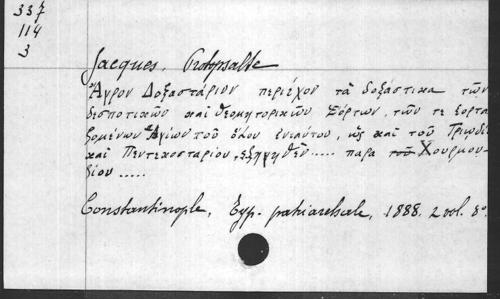 337
114
3
Jacques, Protopsalte
Ἄγρον Δοξαστάριον περιέχον τὰ δοξάστικα τῶν
δεσποτικῶν καὶ θεομητορικῶν Ἑόρτων, τῶν τε ἑορτα
ζομένων Ἁγίων τοῦ ὅλου ἐνιαύτου, ὡς καὶ τοῦ Τριωδί
καὶ Πεντεκοσταρίου, ἐξηγηθὲν ..... παρα τοῦ Χουρμου-
δίου .....
Constantinople, Typ. patriarchale, 1888. 2 vol. 8º.